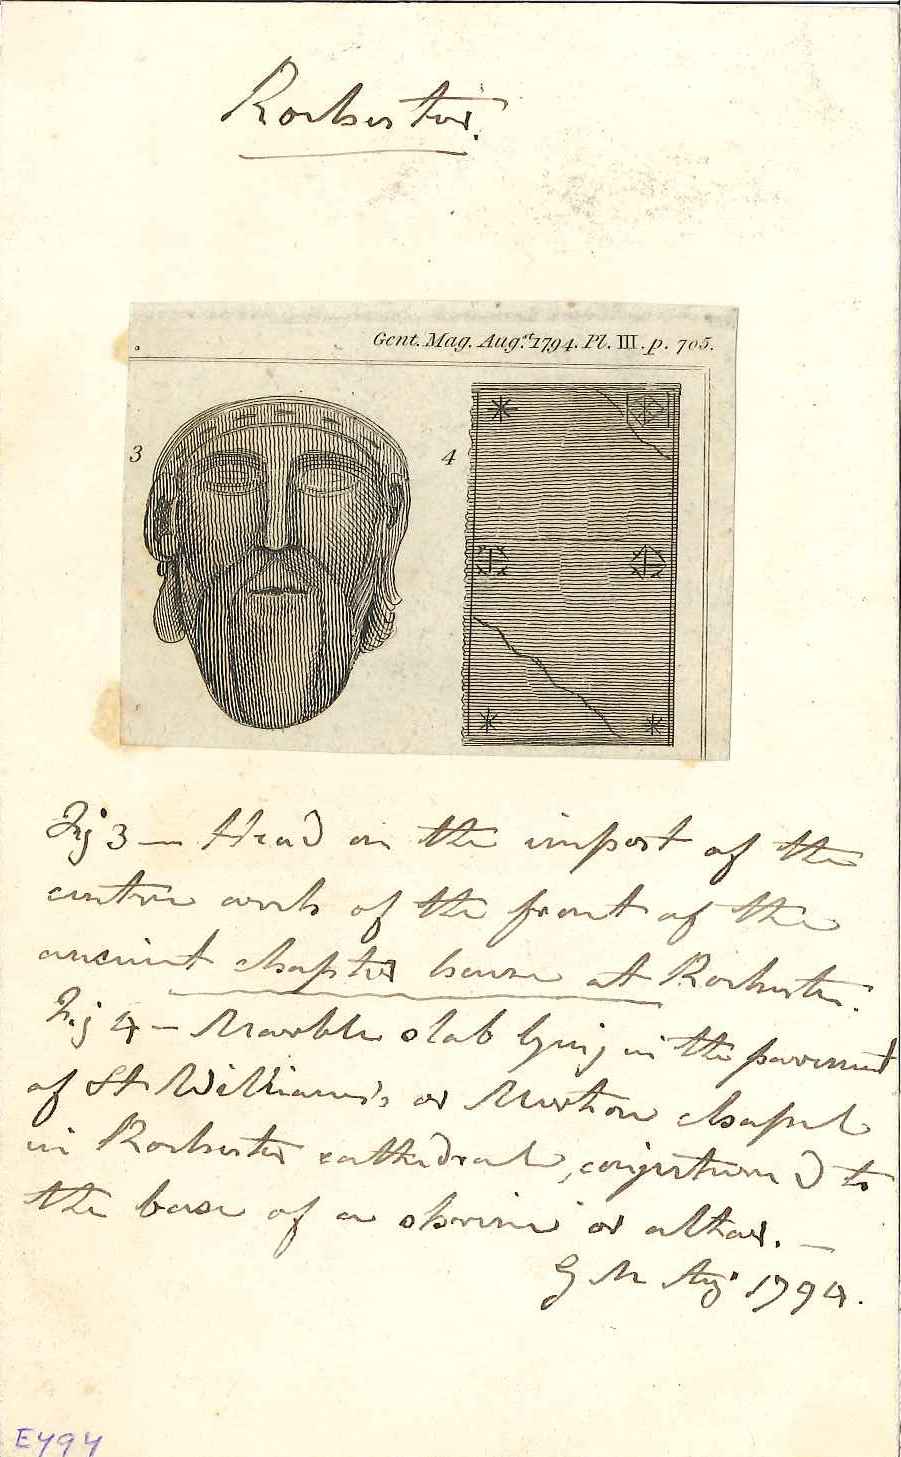 Rochester.
Gent. Mag. Aug.st 1794. Pl. III. p. 705.
3
4
Fig 3 — Head on the impost of the
centre arch of the front of the
ancient chapter house at Rochester.
Fig 4 — Marble slab lying in the pavement
of St William's or Merton chapel
in Rochester cathedral, conjectured to
the base of a shrine or altar. —
G M Aug. 1794.
E494